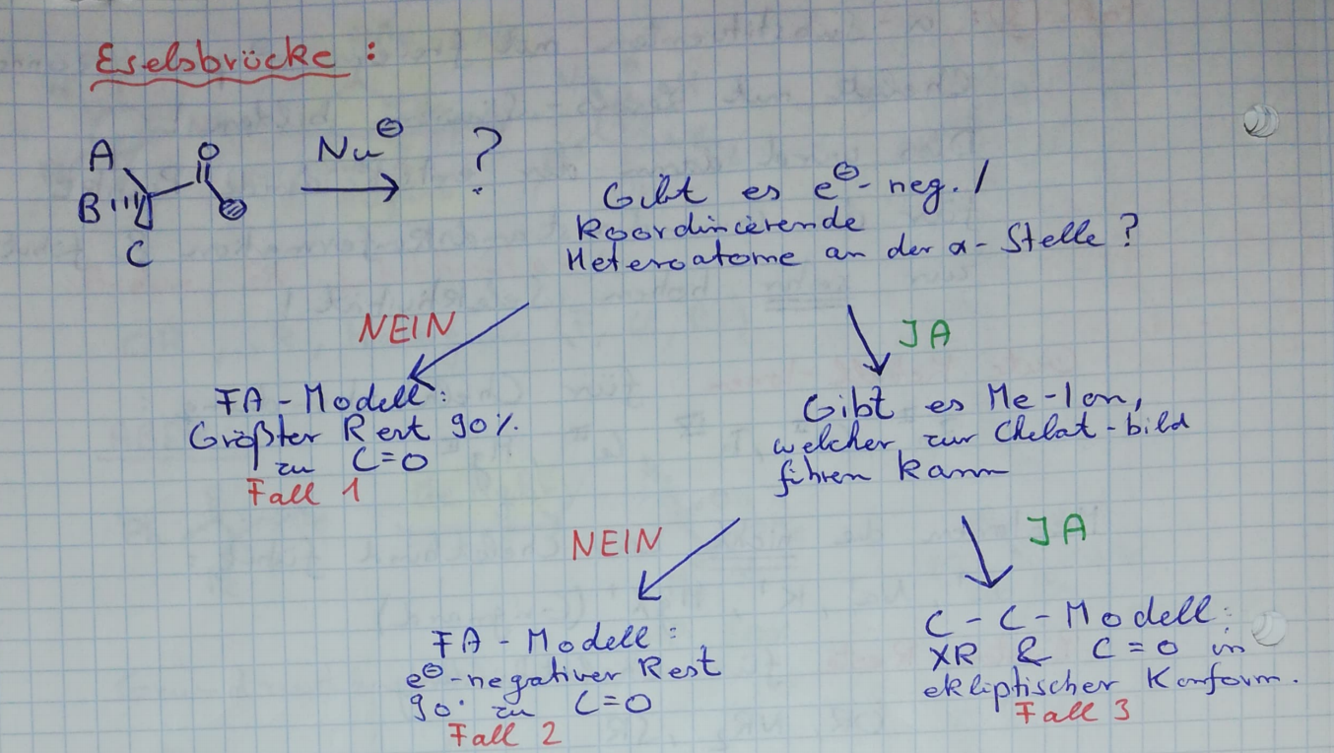 Eselsbrücke :
A O Nu⊖ ?
B
C
Gibt es e⊖-neg. /
koordinierende
Heteroatome an der α-Stelle ?
NEIN
JA
FA-Modell:
Größter Rest 90%
zu C=O
Fall 1
Gibt es Me-Ion,
welcher zur Chelat-bild
führen kann
NEIN
JA
FA-Modell:
e⊖-negativer Rest
90° zu C=O
Fall 2
C-C-Modell:
XR & C=O in
ekliptischer Konform.
Fall 3